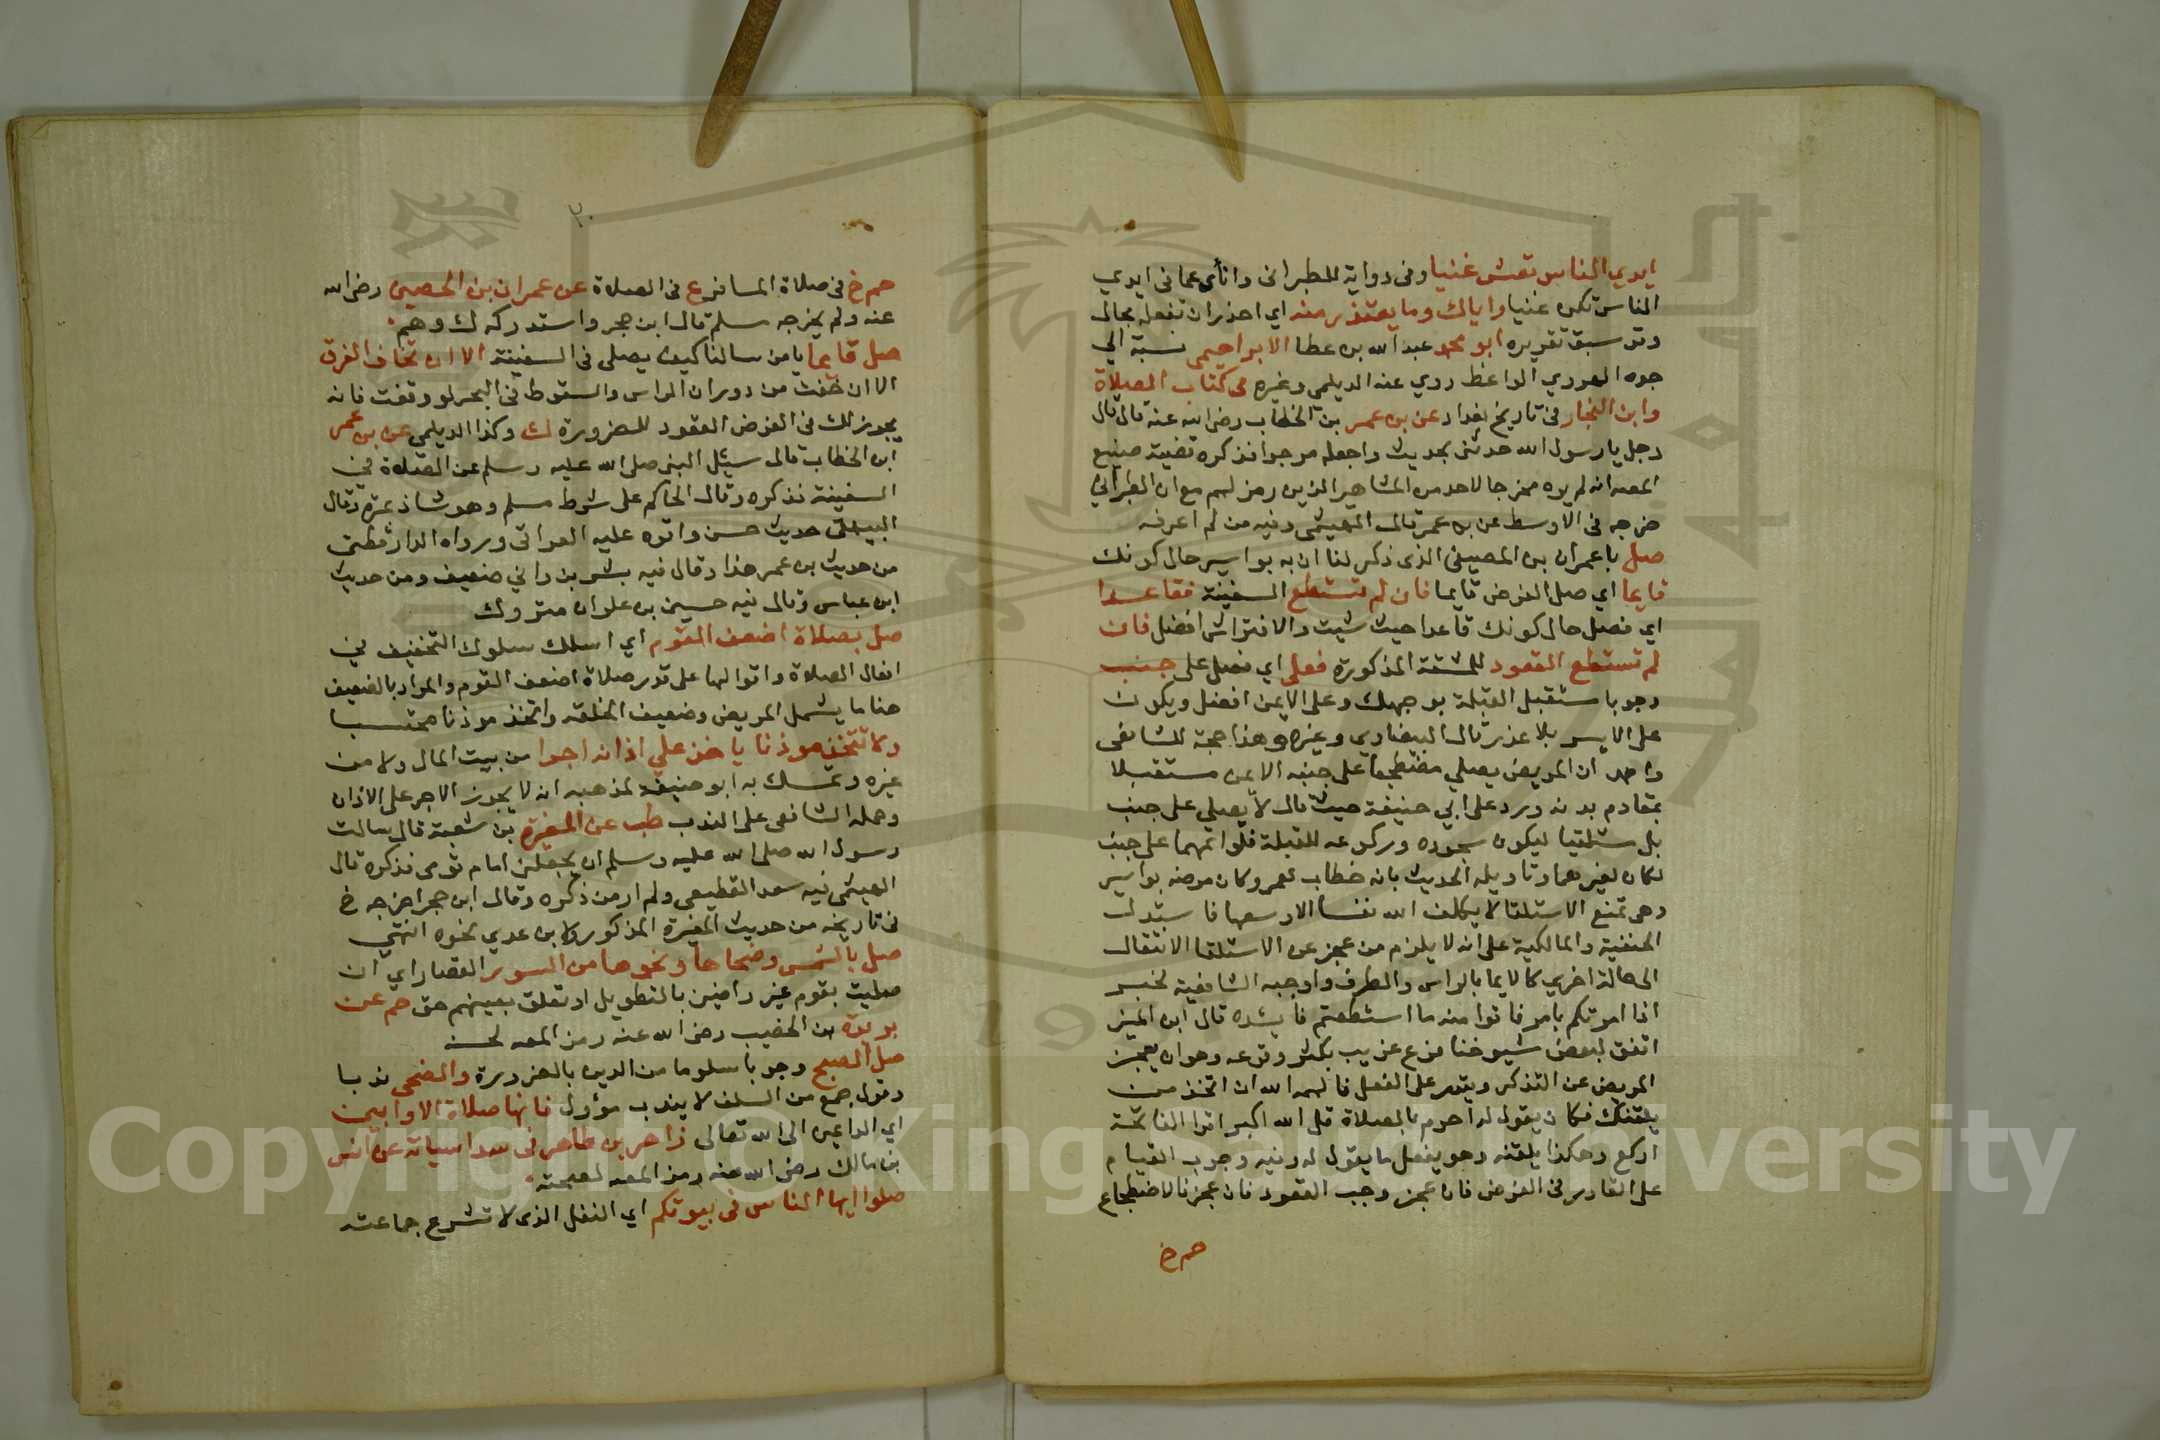 ايدي الناس تعش غنيا وفي رواية للطبراني وانأى عما في ايدي
الناس تكن غنيا واياك وما يعتذر منه اي احذر ان تفعل بحال
وقد سبق تقريره ابو محمد عبد الله بن عطا الابراهيمي نسبة الي
جده الهروي الواعظ روي عنه الديلمي وغيره في كتاب الصلاة
وابن النجار في تاريخ بغداد عن بن عمر بن الخطاب رضي الله عنه قال قال
رجل يا رسول الله حدثني بحديث واجعله موجزا فذكره قضية صنيع
المص انه لم يره مخرجا لاحد من المشاهير الذين رمز لهم مع ان الطبراني
خرجه في الاوسط عن بن عمر قال الهيثمي وفيه من لم اعرفه
صل يا عمران بن الحصين الذي ذكر لنا ان به بواسير حال كونك
قايما اي صل الفرض قايما فان لم تستطع السفينة فقاعدا
اي فصل حال كونك قاعدا حيث شيت والافتراش افضل فان
لم تستطع القعود للمشقة المذكورة فعلى اي فصل على جنب
وجوبا مستقبل القبلة بوجهك وعلى الايمن افضل ويكون
على الايسر بلا عذر قال البيضاوي وغيره وهذا حجة للشافعي
واحمد ان المريض يصلي مضطجعا على جنبه الايمن مستقبلا
بمقادم بدنه ورد على ابي حنيفة حيث قال لا يصلي على جنب
بل مستلقيا ليكون سجوده وركوعه للقبلة فلو اتمهما على جنب
لكان لغيرهما وتاويله الحديث بانه خطاب لعمر وكان مرضه بواسير
وهي تمنع الاستلقا لا يكلف الله نفسا الا وسعها فاستدل
الحنفية والمالكية على انه لا يلزم من عجز عن الاستلقا الانتقال
الى حالة اخري كالايما بالراس والطرف واوجبه الشافعية لخبر
اذا امرتكم بامر فاتوا منه ما استطعتم فايدة قال ابن المنير
اتفق لبعض شيوخنا فرع غريب يكثر وقوعه وهو ان يعجز
المريض عن التذكر ويقدر على الفعل فالهمه الله ان اتخذ من
يلقنه فكان يقول له احرم بالصلاة قل الله اكبر اقرا الفاتحة
اركع وهكذا يلقنه وهو يفعل ما يقول له وفيه وجوب القيام
على القادر في الفرض فان عجز وجب القعود فان عجز فالاضطجاع
حم خ
٢٠
حم خ في صلاة المسافر ع في الصلاة عن عمران بن الحصين رضي الله
عنه ولم يخرجه مسلم قال ابن حجر واستدركه ك وهم
صل قايما يا من سالنا كيف يصلى في السفينة الا ان تخاف الغرق
الا ان خفت من دوران الراس والسقوط في البحر لو وقفت فانه
يجوز لك في الفرض القعود للضرورة ك وكذا الديلمي عن بن عمر
ابن الخطاب قال سيئل النبي صلى الله عليه وسلم عن الصلاة في
السفينة فذكره وقال الحاكم على شرط مسلم وهو شاذ بمرة وقال
البيهقي حديث حسن واقره عليه العراقي ورواه الدارقطني
من حديث بن عمر هذا وقال فيه بشر بن رافي ضعيف ومن حديث
ابن عباس وقال فيه حسين بن علوان متروك
صل بصلاة اضعف القوم اي اسلك سلوك التخفيف في
افعال الصلاة واقوالها على قدر صلاة اضعف القوم والمراد بالضعيف
هنا ما يشمل المريض وضعيف الخلقة واتخذ موذنا محتسبا
ولا تتخذ موذنا ياخذ على اذانه اجرا من بيت المال ولا من
غيره وتمسك به ابو حنيفة لمذهبه انه لا يجوز الاجر على الاذان
وحمله الشافعي على الندب طب عن المغيرة بن شعبة قال سالت
رسول الله صلى الله عليه وسلم ان يجعلني امام قومي فذكره قال
الهيثمي فيه سعد القطيعي ولم ار من ذكره وقال ابن حجر اخرجه خ
في تاريخه من حديث المغيرة المذكور ولابن عدي نحوه انتهي
صل بالشمس وضحاها ونحوها من السور القصار اي ان
صليت بقوم غير راضين بالتطويل او تعلق بعينهم حق حم عن
بريدة بن الحصيب رضي الله عنه رمز المص لحسنه
صل الصبح وجوبا معلوما من الدين بالضرورة والضحى ندبا
وقول جمع من السلف لا يندب مؤول فانها صلاة الاوابين
اي الداعين الى الله تعالى زاهر بن طاهر في سداسياته عن انس
بن مالك رضي الله عنه رمز المص لصحته
صلوا ايها الناس في بيوتكم اي النفل الذي لا تشرع جماعته
Copyright © King Saud University